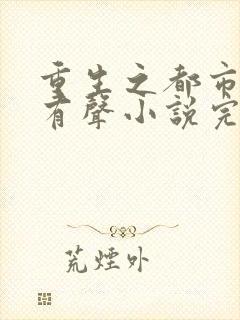 重生之都市
有聲小說完
荒煙外